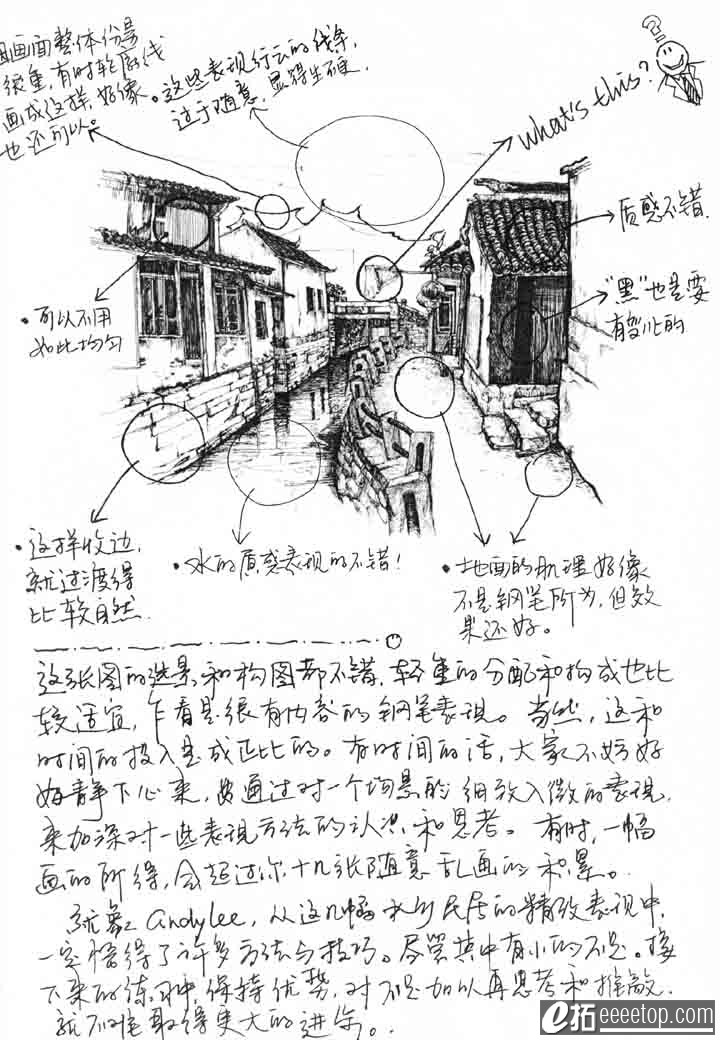 因画面整体份量
很重,有时轮廓线
画成这样,好像
也还可以。
这些表现行云的线条,
过于随意,显得生硬.
what's this?
质感不错.
"黑"也是要
有变化的
·可以不用
如此均匀
·这样收边,
就过渡得
比较自然.
·水的质感表现的不错!
·地面的肌理好像
不是钢笔所为,但效
果还好。
这张图的选景和构图都不错,轻重的分配和构成也比
较适宜,乍看是很有内容的钢笔表现。当然,这和
时间的投入是成正比的。有时间的话,大家不妨好
好静下心来,通过对一个场景的细致入微的表现,
来加深对一些表现方法的认识和思考。有时,一幅
画的所得,会超过你十几张随意乱画的积累。
就象andylee,从这几幅水乡民居的精致表现中,
一定悟得了许多方法与技巧。尽管其中有小的不足。接
下来的练习中,保持优势,对不足加以再思考和推敲.
就不难取得更大的进步。
e拓 eeeetop.com